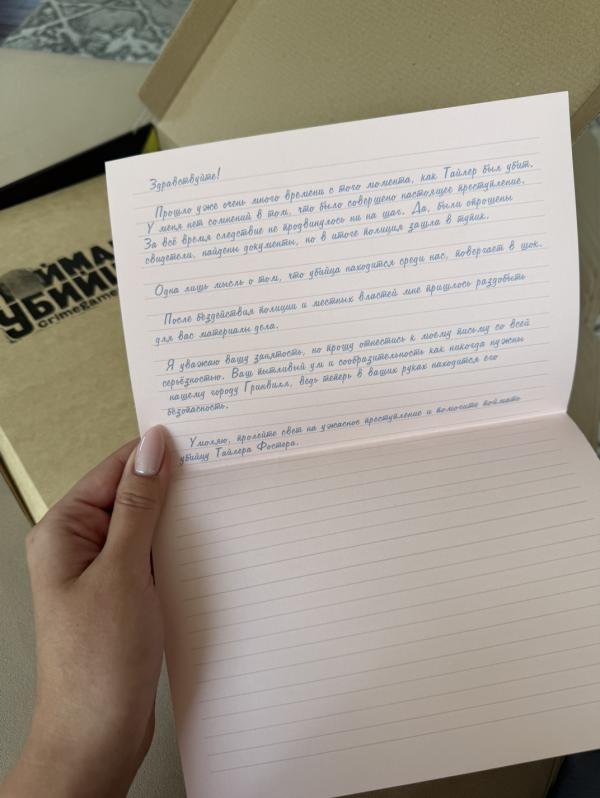 Здравствуйте!
Прошло уже очень много времени с того момента, как Тайлер был убит.
У меня нет сомнений в том, что было совершено настоящее преступление.
За всё время следствие не продвинулось ни на шаг. Да, были опрошены
свидетели, найдены документы, но в итоге полиция зашла в тупик.
Одна лишь мысль о том, что убийца находится среди нас, повергает в шок.
После бездействия полиции и местных властей мне пришлось раздобыть
для вас материалы дела.
Я уважаю вашу занятость, но прошу отнестись к моему письму со всей
серьёзностью. Ваш пытливый ум и сообразительность как никогда нужны
нашему городу Гринвилл, ведь теперь в ваших руках находится его
безопасность.
Умоляю, пролейте свет на ужасное преступление и помогите поймать
убийцу Тайлера Фостера.
ПОЙМАЙ
УБИЙЦ
crimegame